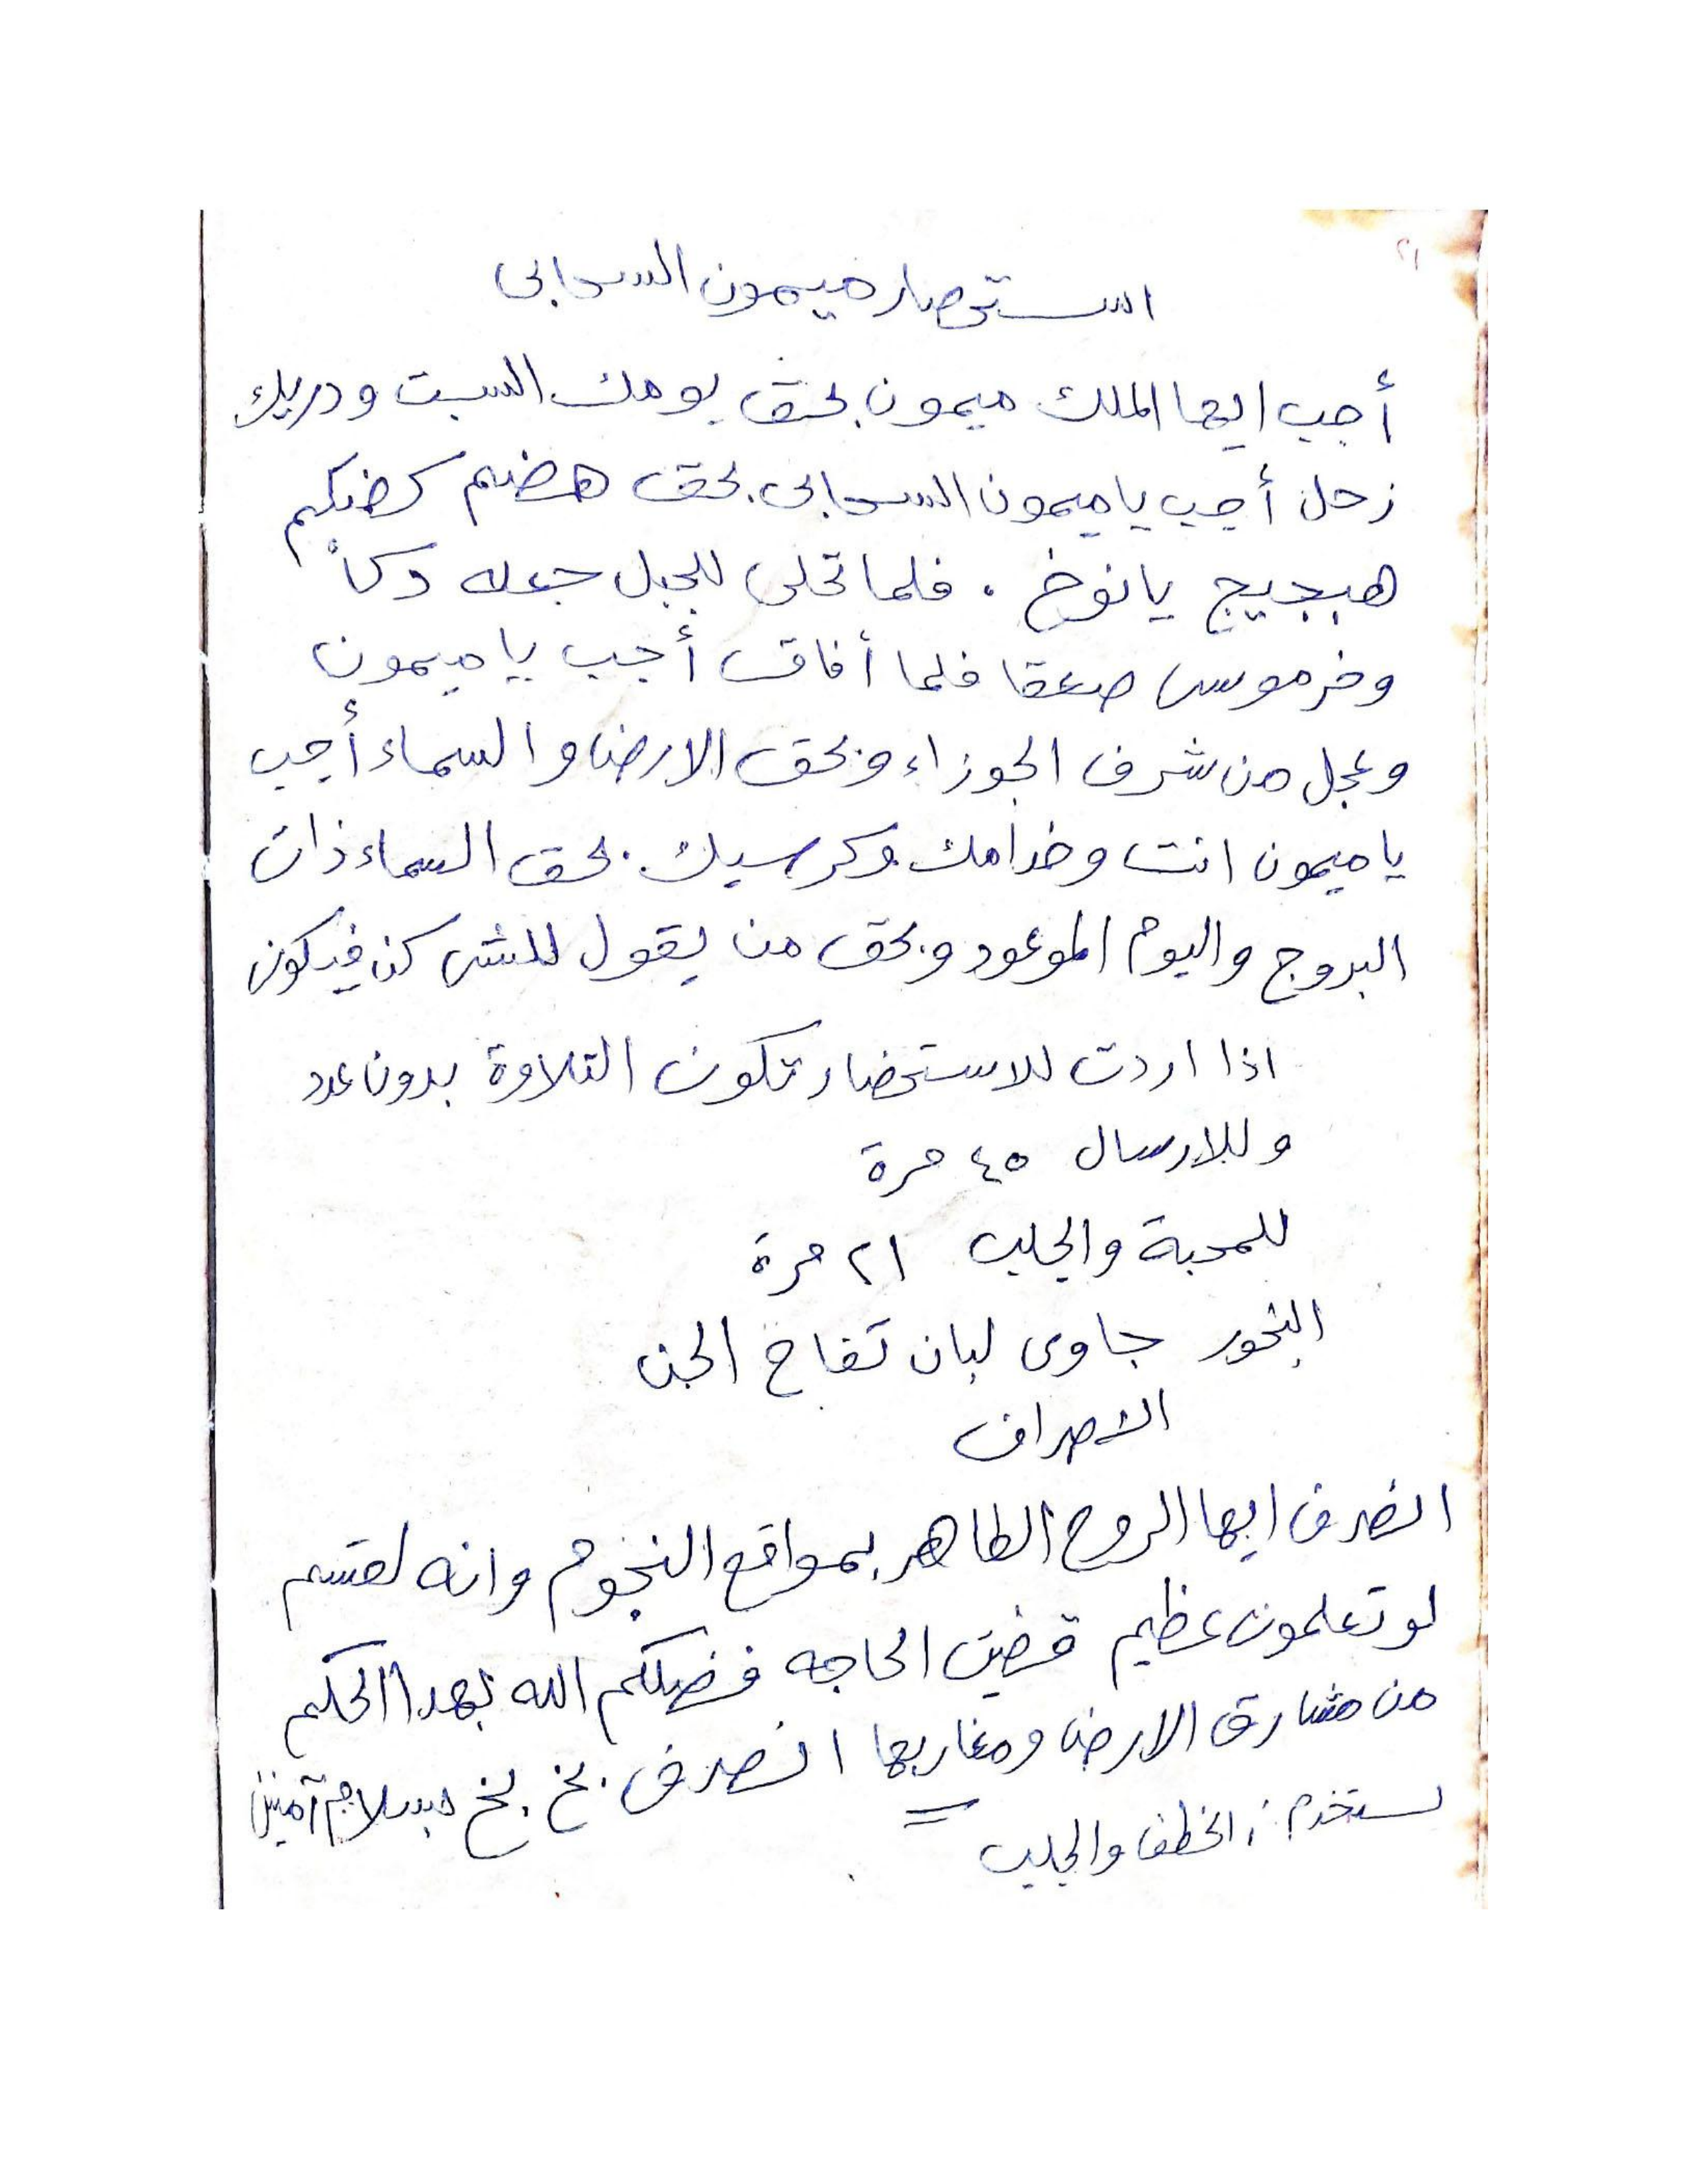 ٢١
استحصار ميمون السحابى
أجب ايها الملك ميمون بحق يومك السبت ودريك
زحل أجب يا ميمون السحابى بحق هضم كضكم
هبجيج يانوخ . فلما تحلى للجبل جعله دكاً
وخر موسى صعقا فلما أفاق أجب يا ميمون
وعجل من شرف الجوزاء وبحق الارض والسماء أجب
يا ميمون انت وخدامك وكرسيك بحق السماء ذات
البروج واليوم الموعود وبحق من يقول للشى كن فيكون
اذا اردت للاستحضار تكون التلاوة بدون عدد
وللارسال ٤٥ مرة
للمحبة والجلب ٢١ مرة
البخور جاوى لبان تفاح الجن
الاصراف
انصرف ايها الروح الطاهر بمواقع النجوم وانه لقسم
لو تعلمون عظيم قضيت الحاجه فضلكم الله بهدا الحكم
من مشارق الارض ومغاربها انصرف بخ بخ بسلام آمنين
لستخدم : الخطف والجلب